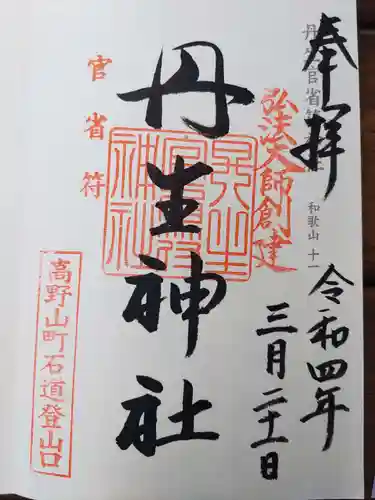 奉拝
丹生官省符神社
和歌山 十一
令和四年
三月二十一日
弘法大師創建
丹生神社
官省符
高野山町石道登山口